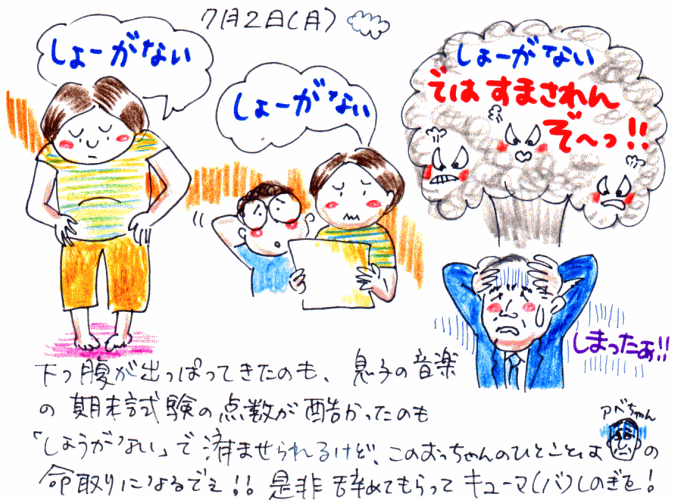 7月2日(月)
しょーがない
しょーがない
しょーがない
ではすまされん
ぞ〜っ!!
しまったぁ!!
下っ腹が出っぱってきたのも、息子の音楽
の期末試験の点数が酷かったのも
アベちゃん
「しょうがない」で済ませられるけど、このおっちゃんのひとことはの
命取りになるでぇ!!是非辞めてもらってキューマ(バ)しのぎを!